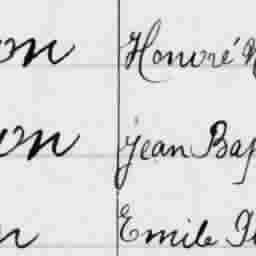 on Honoré
on Jean Bap
n Emile